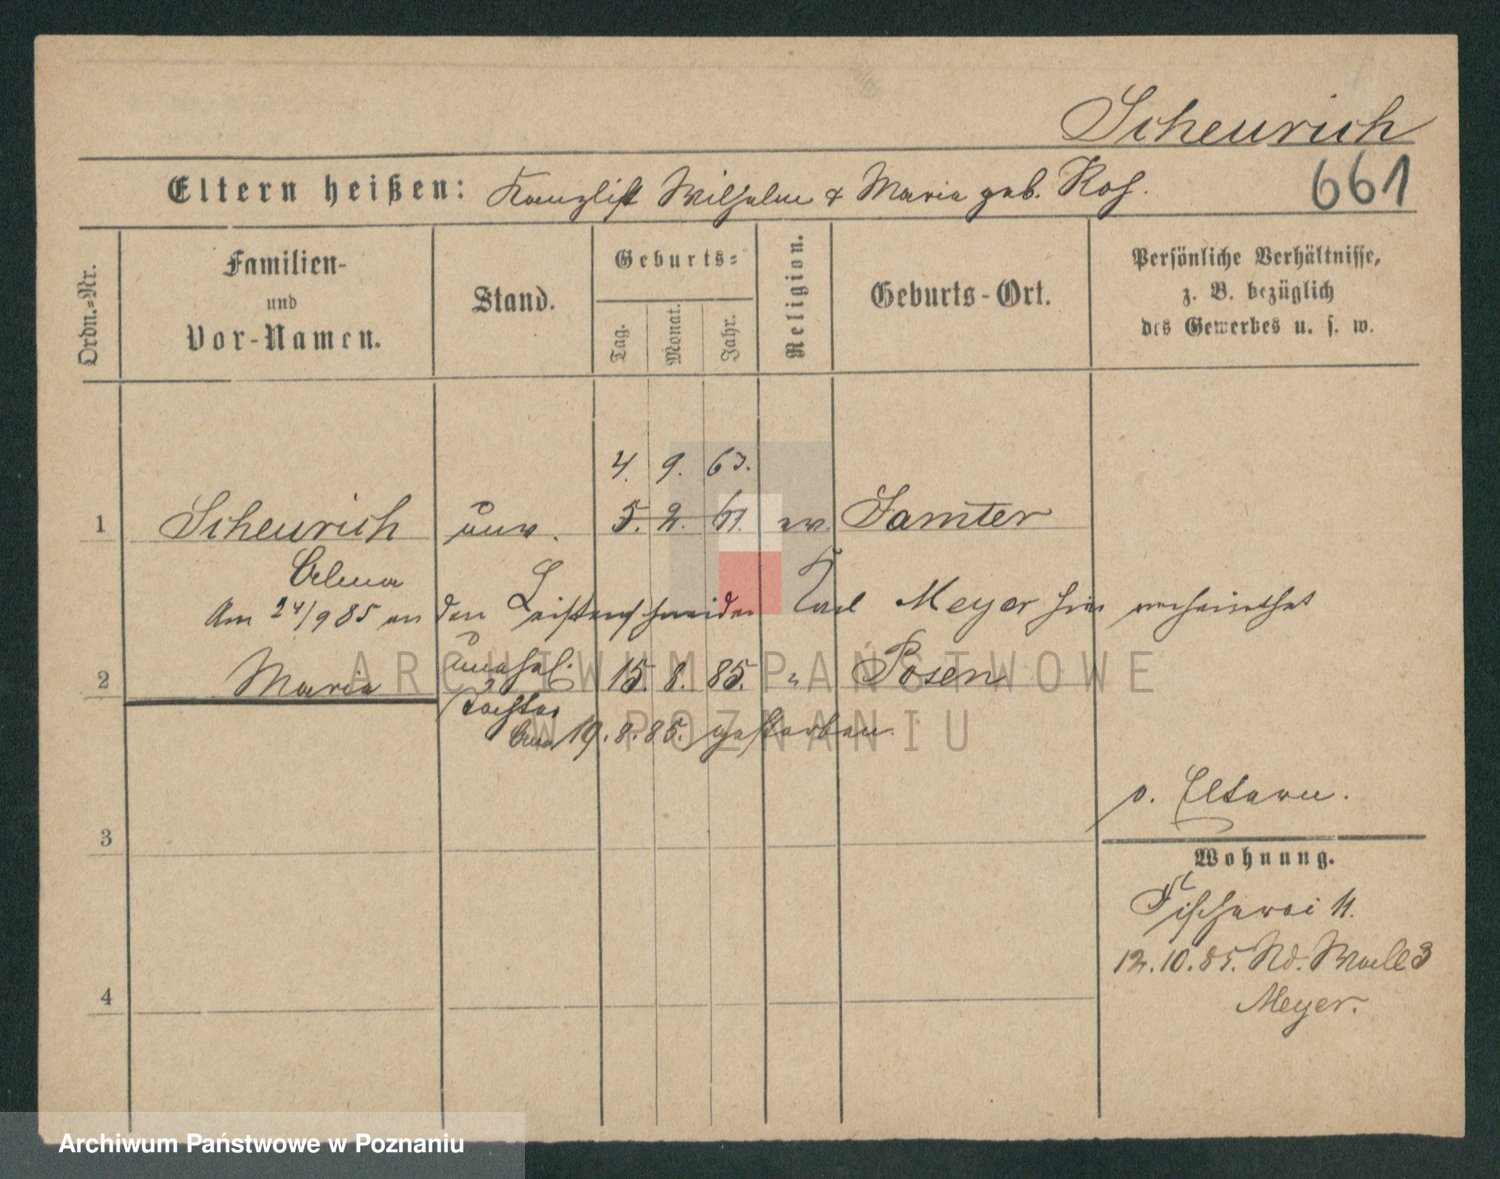 Scheurich
Eltern heißen: Kanzlist Wilhelm & Maria geb. Roß.
661
Ordn.=Nr.
Familien-
und
Vor-Namen.
Stand.
Geburts=
Tag.
Monat.
Jahr.
Religion.
Geburts-Ort.
Persönliche Verhältnisse,
z. B. bezüglich
des Gewerbes u. s. w.
4. 9. 63.
1 Scheurich unv. 5. 2. 61. ev. Samter
Alma
Am 24/9 85 an den Leistenschneider Karl Meyer hier verheirathet
2 Maria unehel. 15. 8. 85. " Posen
Tochter
Am 19. 8. 85. gestorben.
3
o. Eltern.
Wohnung.
Fischerei 11.
12. 10. 85. Nd. Wall 3
Meyer.
4
ARCHIWUM PAŃSTWOWE
W POZNANIU
Archiwum Państwowe w Poznaniu